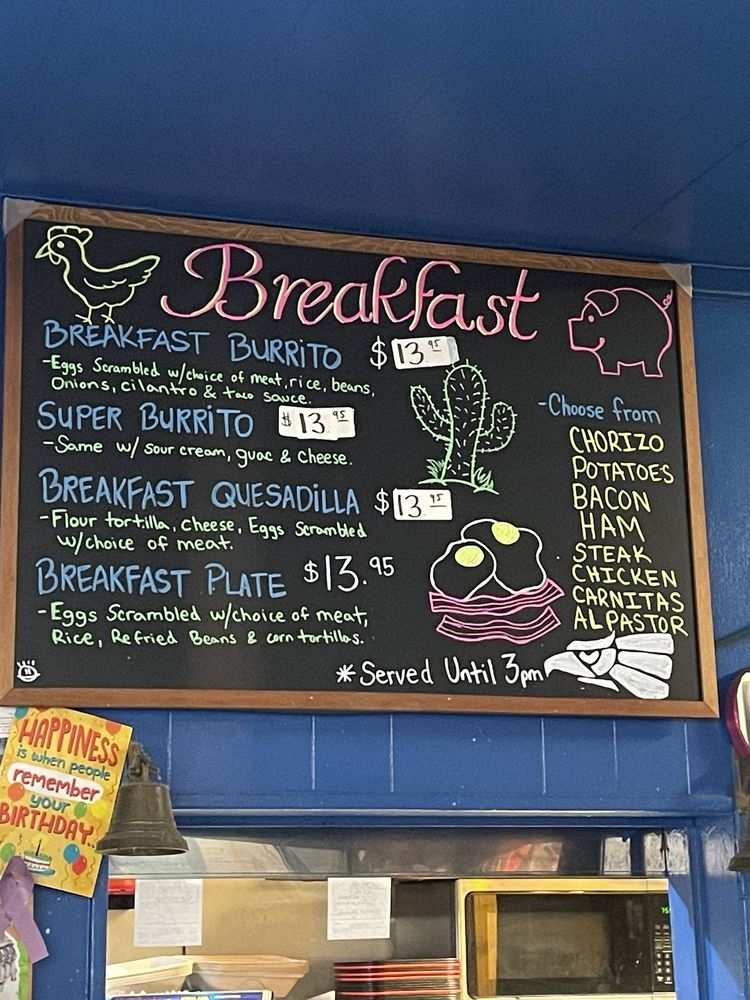 Breakfast
BREAKFAST BURRITO $13.95
-Eggs Scrambled w/choice of meat, rice, beans,
Onions, cilantro & taco sauce.
SUPER BURRITO $13.95
-Same w/ sour cream, guac & cheese.
BREAKFAST QUESADILLA $13.95
-Flour tortilla, cheese, Eggs Scrambled
w/choice of meat.
BREAKFAST PLATE $13.95
-Eggs Scrambled w/choice of meat,
Rice, Refried Beans & corn tortillas.
-Choose from
CHORIZO
POTATOES
BACON
HAM
STEAK
CHICKEN
CARNITAS
AL PASTOR
*Served Until 3pm
HAPPINESS
is when people
remember
your
BIRTHDAY..